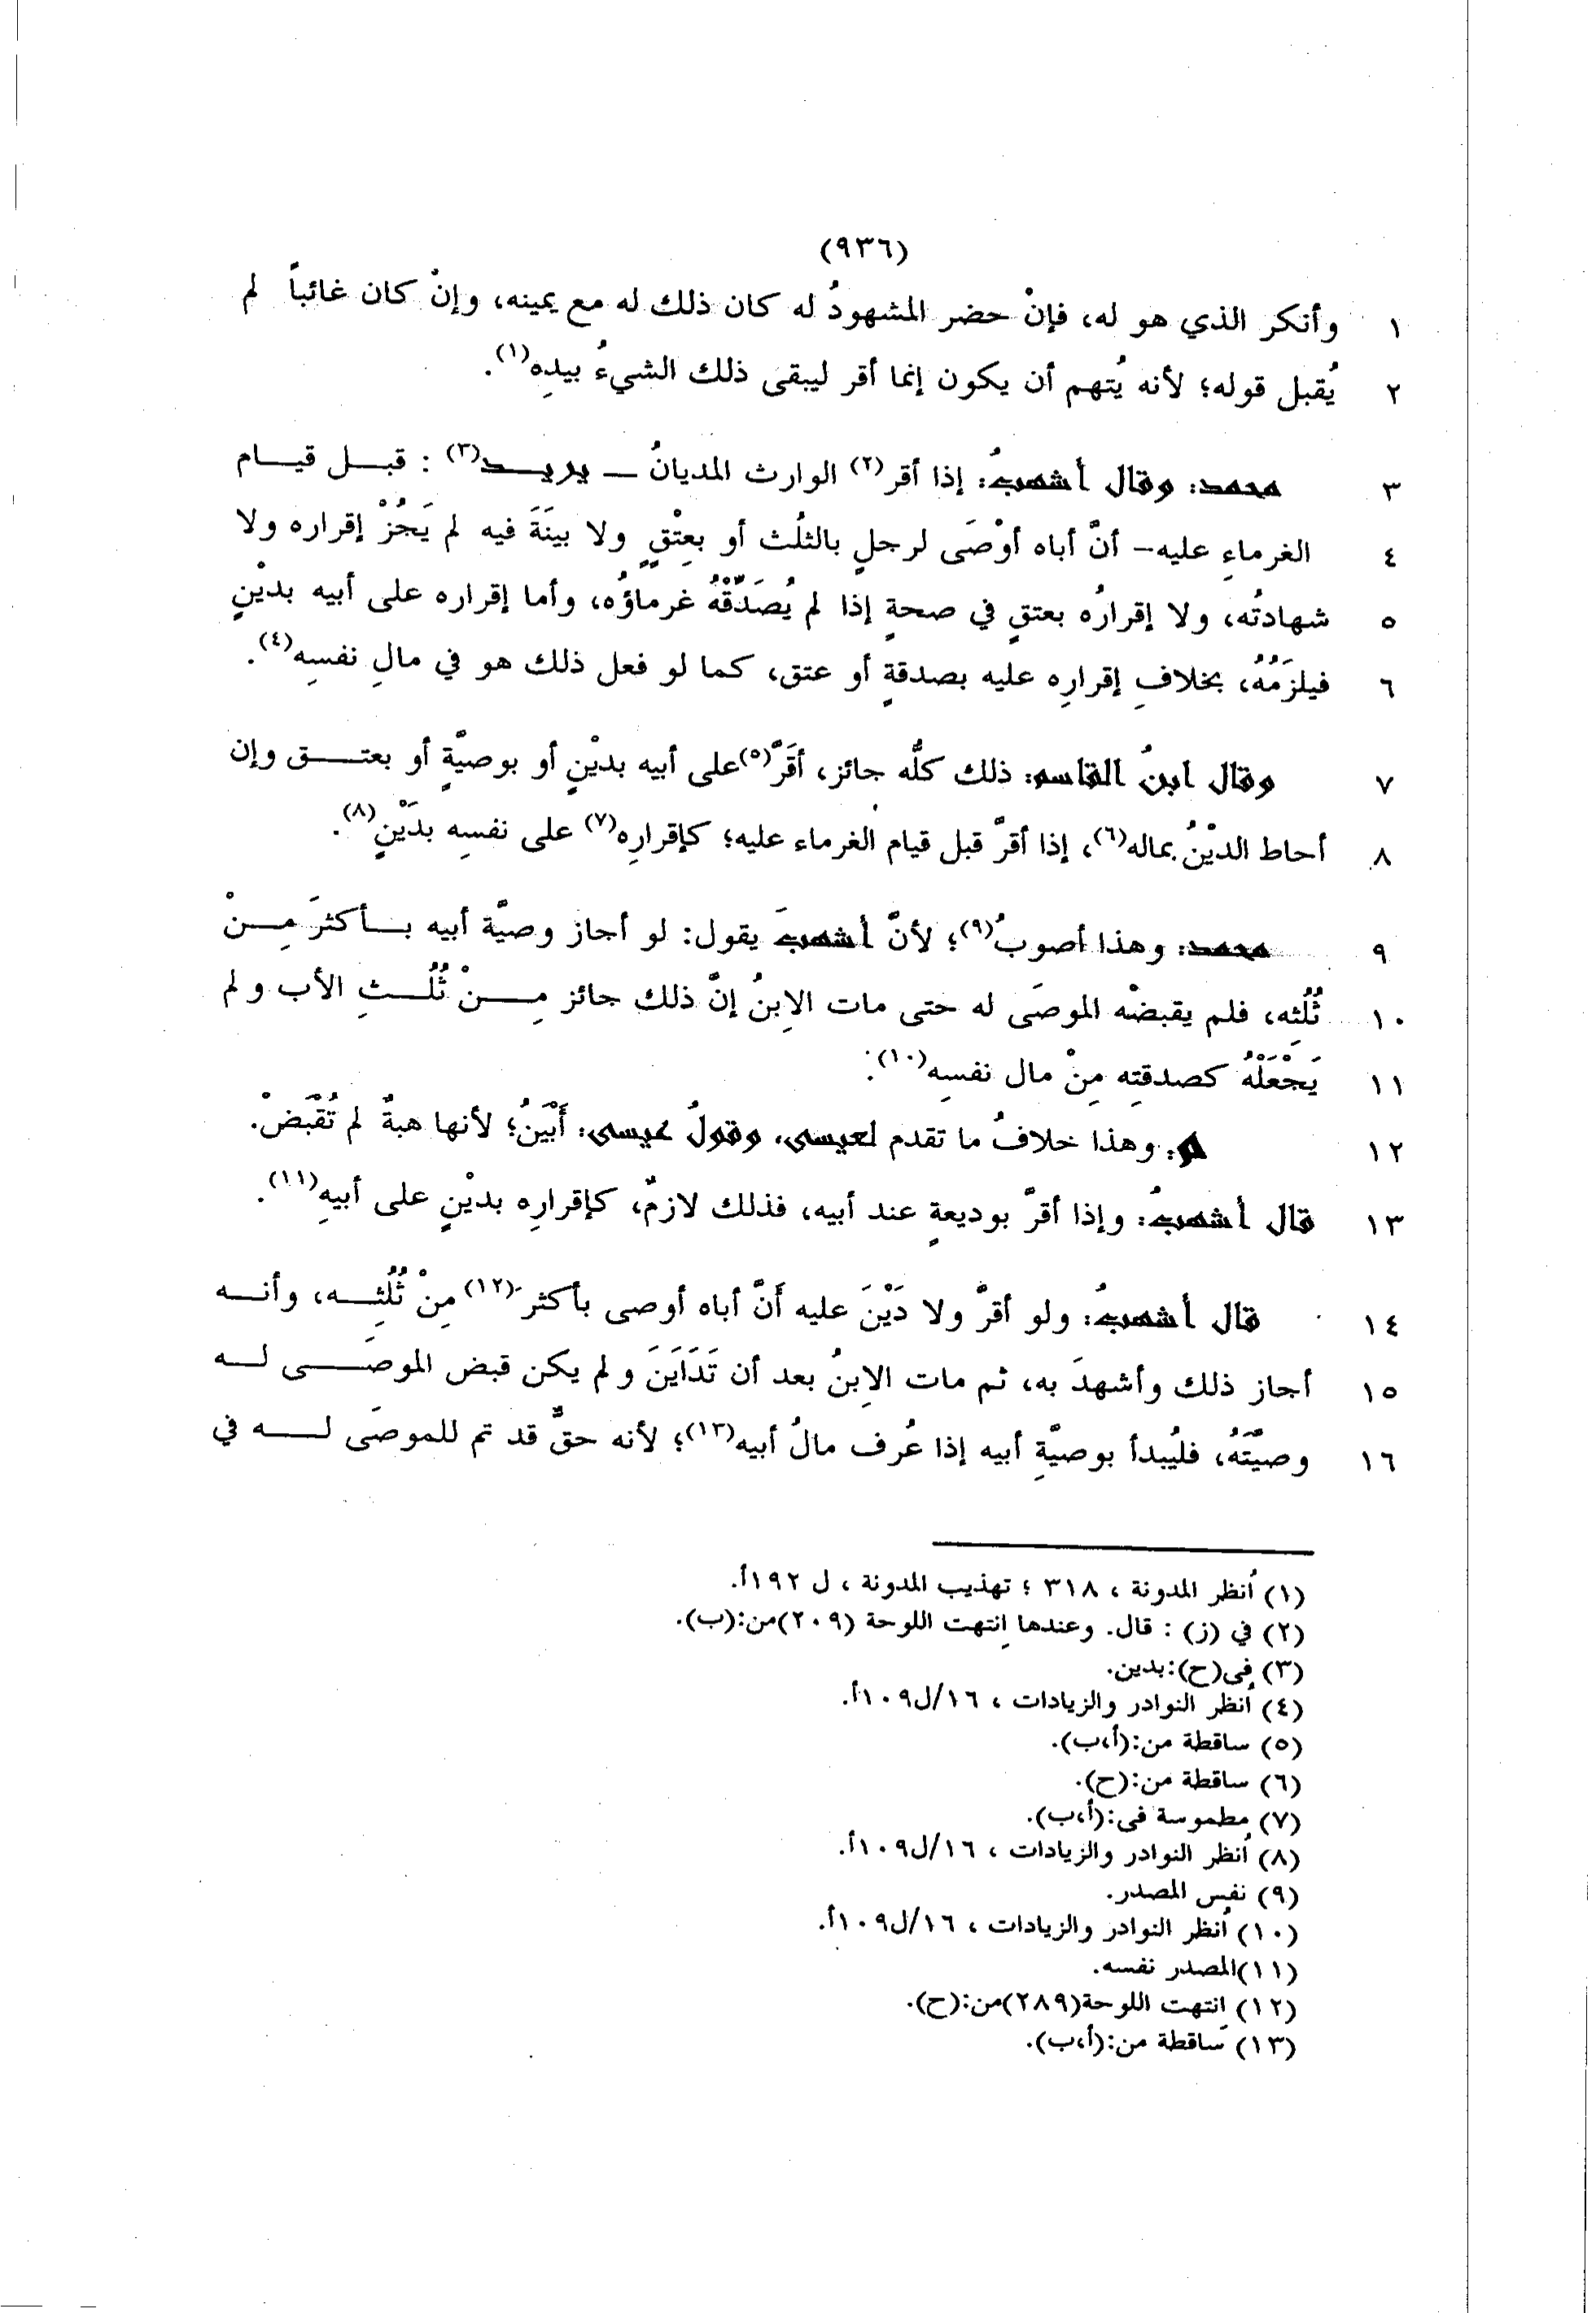 (٩٣٦)
١ وأنكر الذي هو له، فإنْ حضر المشهودُ له كان ذلك له مع يمينه، وإنْ كان غائباً لم
٢ يُقبل قوله؛ لأنه يُتهم أن يكون إنما أقر ليبقى ذلك الشيءُ بيدِه(١).
٣ محمد: وقال أشهبُ: إذا أقر(٢) الوارث المديانُ ــ يريــد(٣) : قبــل قيــام
٤ الغرماءِ عليه– أنَّ أباه أوْصَى لرجلٍ بالثلُث أو بعِتْقٍ ولا بينَةَ فيه لم يَجُزْ إقراره ولا
٥ شهادتُه، ولا إقرارُه بعتقٍ في صحةٍ إذا لم يُصَدِّقْهُ غرماؤُه، وأما إقراره على أبيه بديْنٍ
٦ فيلزَمُهُ، بخلافِ إقرارِه عليه بصدقةٍ أو عتق، كما لو فعل ذلك هو في مالِ نفسِه(٤).
٧ وقال ابنُ القاسم: ذلك كلُّه جائز، أقَرَّ(٥) على أبيه بديْنٍ أو بوصيَّةٍ أو بعتــــق وإن
٨ أحاط الديْنُ بماله(٦)، إذا أقرَّ قبل قيام الغرماء عليه؛ كإقرارِه(٧) على نفسِه بدَيْنٍ(٨).
٩ محمد: وهذا أصوبُ(٩)؛ لأنَّ أشهبَ يقول: لو أجاز وصيَّة أبيه بــأكثرَ مِــنْ
١٠ ثُلُثِه، فلم يقبضْه الموصَى له حتى مات الاِبنُ إنَّ ذلك جائز مِــــنْ ثُلُــثِ الأب و لم
١١ يَجْعَلْهُ كصدقتِه مِنْ مال نفسِه(١٠).
١٢ م: وهذا خلافُ ما تقدم لعيسى، وقولُ عيسى: أَبْيَنُ؛ لأنها هبةٌ لم تُقْبَضْ.
١٣ قال أشهبُ: وإذا أقرَّ بوديعةٍ عند أبيه، فذلك لازمٌ، كإقرارِه بديْنٍ على أبيهِ(١١).
١٤ قال أشهبُ: ولو أقرَّ ولا دَيْنَ عليه أَنَّ أباه أوصى بأكثرَ(١٢) مِنْ ثُلُثِــه، وأنــه
١٥ أجاز ذلك وأشهدَ به، ثم مات الاِبنُ بعد أن تَدَايَنَ و لم يكن قبض الموصَــــى لــه
١٦ وصيَّتَهُ، فليُبدأ بوصيَّةِ أبيه إذا عُرف مالُ أبيه(١٣)؛ لأنه حقٌّ قد تم للموصَى لــــه في
(١) اُنظر المدونة ، ٣١٨ ؛ تهذيب المدونة ، ل ١٩٢أ.
(٢) في (ز) : قال. وعندها اِنتهت اللوحة (٢٠٩)من:(ب).
(٣) في(ح):بدين.
(٤) اُنظر النوادر والزيادات ، ١٦/ل١٠٩أ.
(٥) ساقطة من:(أ،ب).
(٦) ساقطة من:(ح).
(٧) مطموسة في:(أ،ب).
(٨) اُنظر النوادر والزيادات ، ١٦/ل١٠٩أ.
(٩) نفس المصدر.
(١٠) اُنظر النوادر والزيادات ، ١٦/ل١٠٩أ.
(١١)المصدر نفسه.
(١٢) اِنتهت اللوحة(٢٨٩)من:(ح).
(١٣) ساقطة من:(أ،ب).